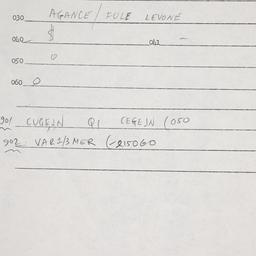 030 AGANCE / FULE LEVONÉ
040 $ 043 –
050 0
060 0
901 CUGEJN Q1 CEGEJN (050
902 VAR1/3 MER (-215060